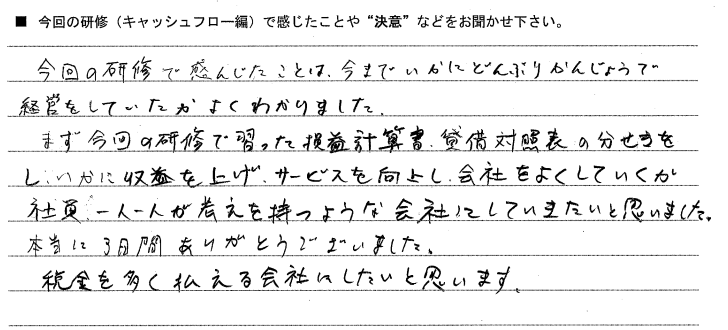 ■ 今回の研修（キャッシュフロー編）で感じたことや“決意”などをお聞かせ下さい。
今回の研修で感んじたことは、今までいかにどんぶりかんじょうで
経営をしていたかよくわかりました。
まず今回の研修で習った損益計算書、貸借対照表の分せきを
し、いかに収益を上げ、サービスを向上し、会社をよくしていくか
社員、一人一人が考えを持つような会社にしていきたいと思いました。
本当に3日間ありがとうございました。
税金を多く払える会社にしたいと思います。